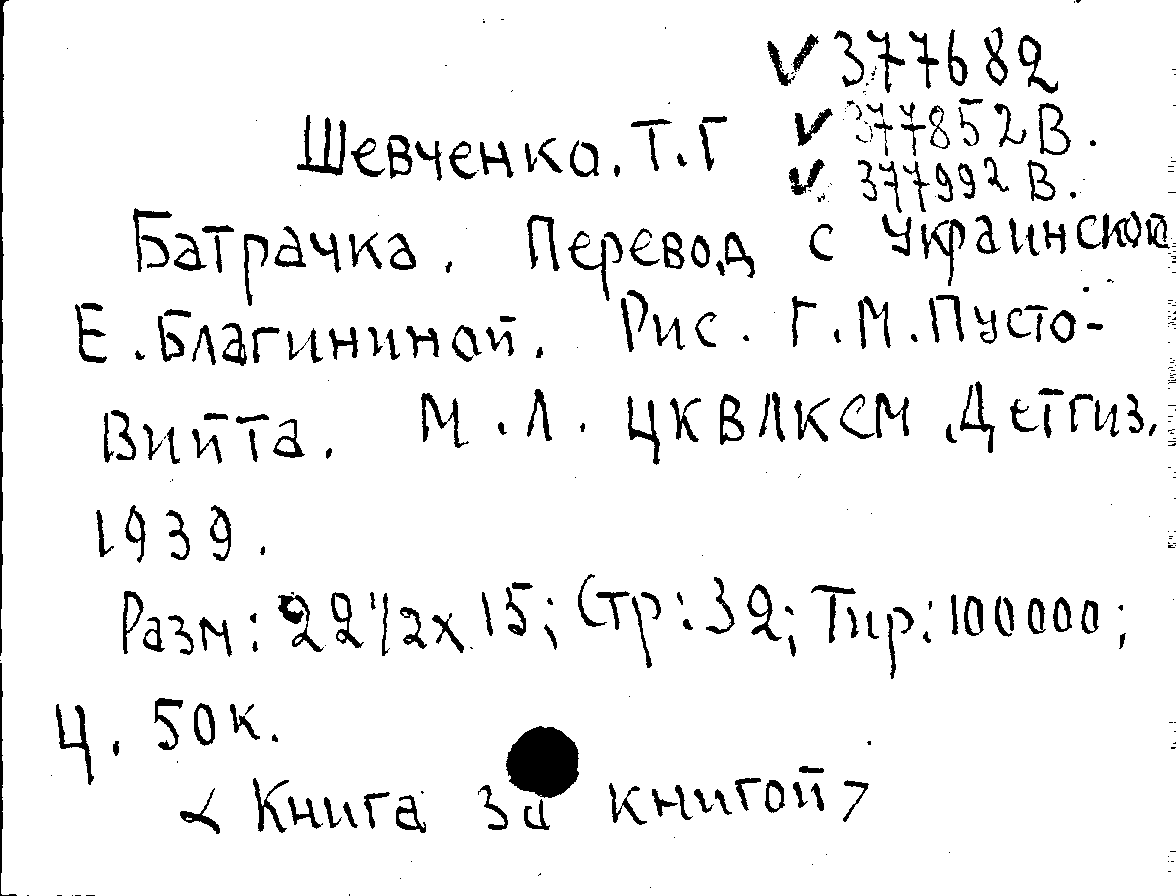 ✓ 377682
Шевченко. Т.Г ✓ 377852 В.
✓ 377992 В.
Батрачка. Перевод с украинского
Е. Благининой. Рис. Г.М. Пусто-
войта. М.Л. ЦКВЛКСМ, Детгиз.
1939.
Разм: 22 1/2 x 15; Стр: 32; Тир: 100000;
Ц. 50к.
< Книга за книгой >